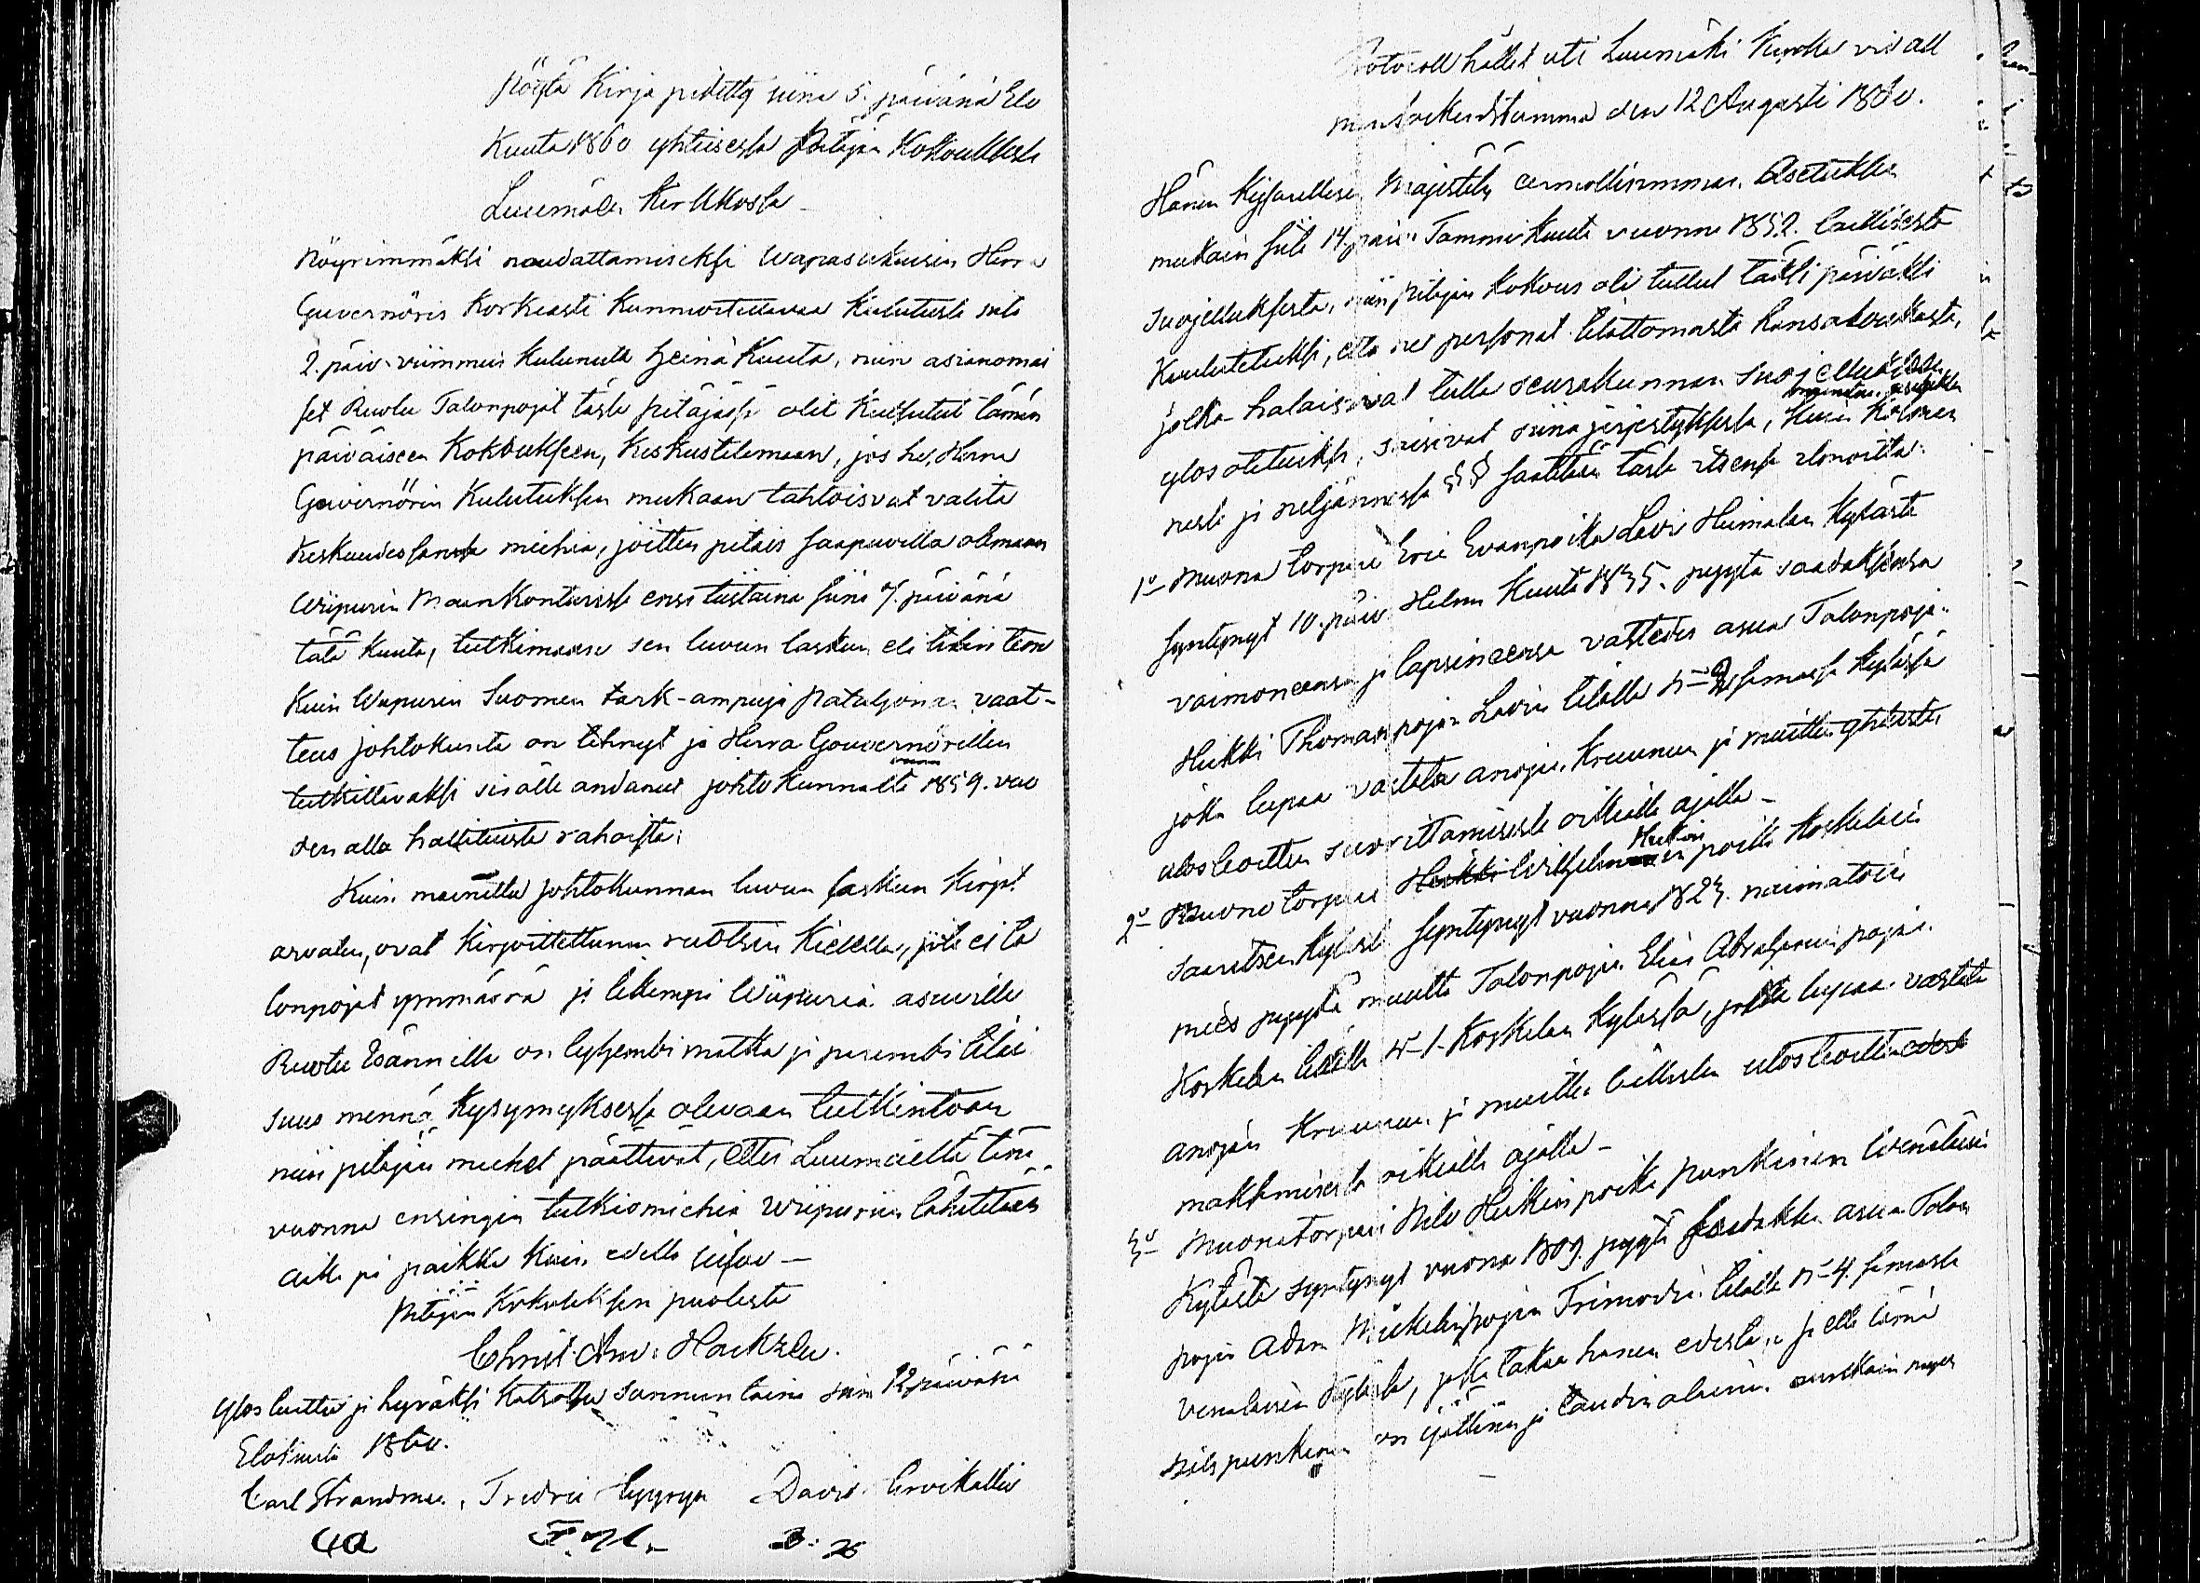 Pöytä Kirja pidetty siinä 5. päivänä Elo
Kuuta 1860 yhteisessä Pitäjän Kokouksessa
Luumäen Kirkkosa
Nöyrimmäksi noudattamiseksi Wapasukuisen Herra
Guvernörin Korkiasti Kunnioitettavaa Kuulutusta siitä
2. päiv. viimmein kulunutta Heinä Kuuta, niin asianomai
set Ruotu Talonpojat tästä pitäjästä olit Kutsutut tämän
päiväiseen Kokoukseen, Keskustelemaan, jos he, Herra
Guvernörin Kulutuksen mukaan tahtoisivat valita
Keskuudestansa miehiä, joitten pitäis saapuvilla oleman
Wiipurin Maankontorissa ensi tiistaina siinä 7. päivänä
tätä Kuuta, tutkimaan sen luvun laskun eli tilin teon
Kuin Wiipurin Suomen tark-ampuja pataljonan vaat-
teus johtokunta on tehnyt ja Herra Gouvernörillen
tutkittavaksi sisälle andanut johtokunnalta 1859. vuo
den alla hallituista rahoista;
Kuin mainittu johtokunnan luvun laskun Kirjat
arvaten, ovat Kirjoitettunna ruotsin Kielellä, jota ei ta
lonpojat ymmärrä ja likempi Wiipuria asuvilla
Ruotu Isännillä on lyhembi matka ja parembi tilai
suus mennä Kysymyksessä olevaan tutkintoon
niin pitäjän miehet päättivät, ettei Luumäeltä tänä
vuonna ensingin tutkiomiehiä Wiipuriin lähetetä
aika ja paikka Kuin edellä seisoo —
Pitäjän Kokouksen puolesta
Christ. Am. Hackzell.
Ylös luettu ja hyväksi Katsottu sunnuntaina siinä 12 päivänä
Elokuuta 1860.
Carl Strandman, Fredric Pyyryn David Ervikallio
Protocoll hållet uti Luumäki Kyrka vid all
män Sockenstämma den 12 Augusti 1860.
Hänen Kejsarillisen Majestetin armollisimman Asetuksen
mukain siitä 14 päiv. Tammikuuta vuonna 1852. laillisesta
suojelluksesta, niin pitäjän Kokous oli tullut täksi päiväksi
Kuulutetuksi, että ne personat tilattomasta Kansakunnasta,
jotka halaisivat tulla seurakunnan suojelluxeen
ylosotetuiksi, saisivat siinä järjestyksessä, Kuin mainitun asetuksen Kolman
nesta ja neljännessä §§ säätään tästä itsensä ilmoittaa.
1o Muona torpari Eric Evanpoika Lavi Heimalan Kylästä
syntynyt 10 päiv. Helmi Kuuta 1835. pyytä saadaksensa
vaimonensa ja lapsinensa vastedes asua Talonpojan
Heikki Thomaanpojan Lavin tilalla No 2 samassa Kylässä
joka lupaa vastata anojan Kruunun ja muitten yhteisten
ulostekoitten suorittamisesta oikialla ajalla —
2o Muona torpari Wilhelm Heikin poika Koskelain
Saaritsen Kylästä syntynyt vuonna 1823. naimatoin
mies pyytä muutta Talonpojan Elias Abrahamin pojan
Koskelan tilalla No 1 Koskelan Kylässä, joka lupaa vastata
anojan Kruunun ja muitten laillisten ulostekoitten
maksamisesta oikialla ajalla —
3o Muonatorpari Nils Heikin poika Punkinen
Kylästä syntynyt vuonna 1809. pyytä saadakse asua Talon
pojan Adam Mickelinpojan tilalla No 4. samassa
Kylässä, joka takaa hänen edestä,
Nils punkinen on